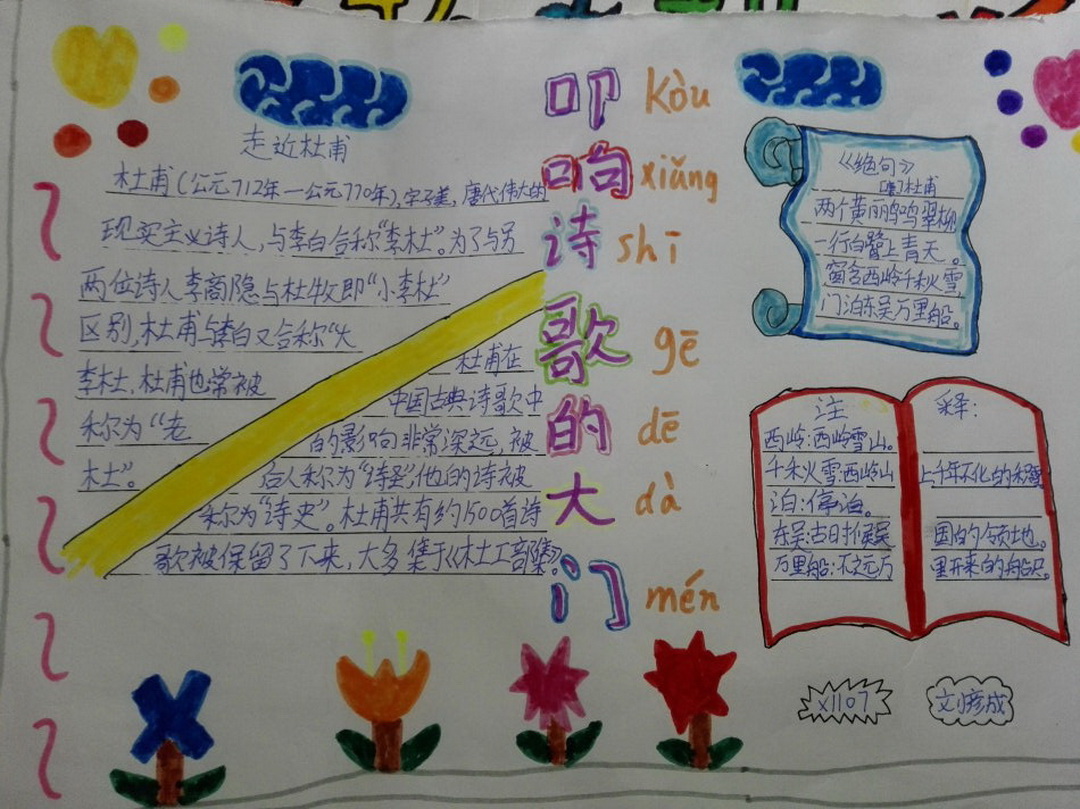 走近杜甫
杜甫(公元712年—公元770年),字子美,唐代伟大的
现实主义诗人,与李白合称“李杜”。为了与另
两位诗人李商隐与杜牧即“小李杜”
区别,杜甫与李白又合称“大
李杜,杜甫也常被
称为“老
杜”。
杜甫在
中国古典诗歌中
的影响非常深远,被
后人称为“诗圣”,他的诗被
称为“诗史”。杜甫共有约1500首诗
歌被保留了下来,大多集于《杜工部集》。
叩 kòu
响 xiǎng
诗 shī
歌 gē
的 dē
大 dà
门 mén
《绝句》
[唐]杜甫
两个黄丽鸣翠柳
一行白鹭上青天。
窗含西岭千秋雪
门泊东吴万里船。
注 释:
西岭:西岭雪山。
千秋雪:西岭山上千年不化的积雪
泊:停泊。
东吴:古时候吴国的领地。
万里船:不远万里开来的船只。
x1107
刘彦成